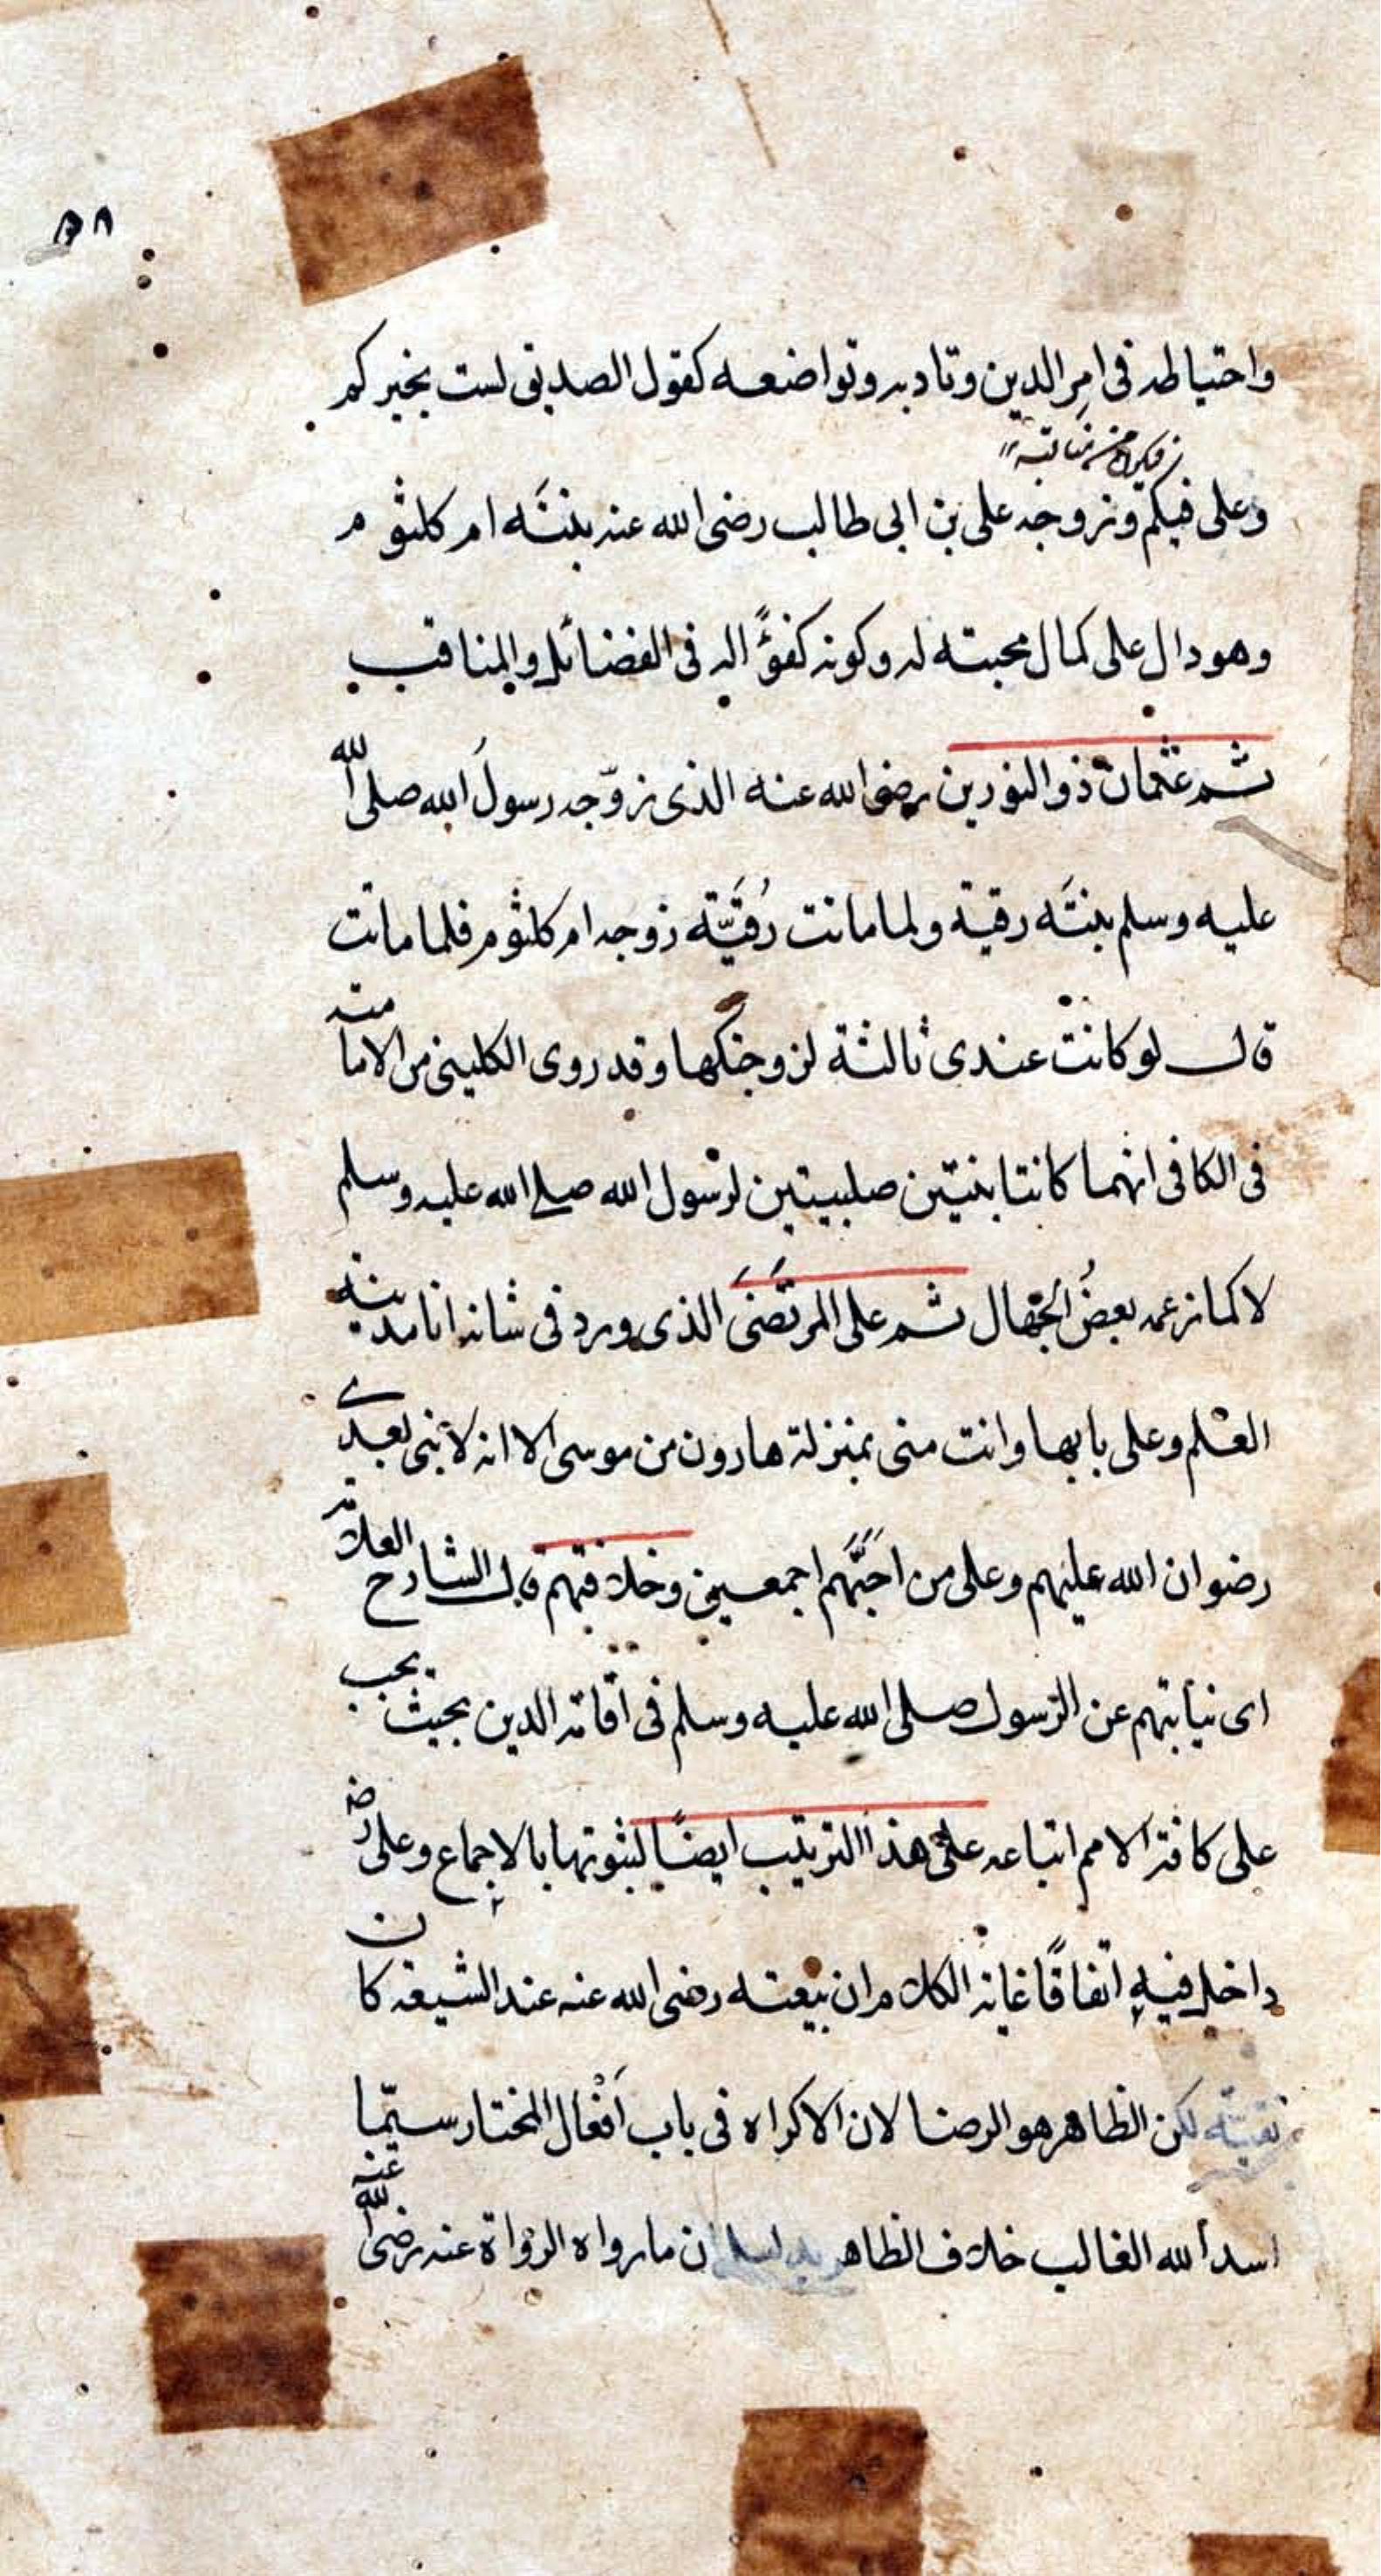 ٥٨
واحتياطه فى امر الدين وتادبه وتواضعه كقول الصديق لست بخيركم
وعلى فيكم وتزوجه على بن ابى طالب رضى الله عنه بنتَه ام كلثوم
وهو دال على كمال محبته له وكونه كفوًّا اليه فى الفضائل والمناقب
ثم عثمان ذو النورين رضى الله عنه الذى زوّجه رسولَ الله صلى الله
عليه وسلم بنتَه رقية ولما ماتت رُقَيَّة زوجه ام كلثوم فلما ماتت
قال لو كانت عندى ثالثة لزوجتكها وقد روى الكلينى من الامامته
فى الكافى انهما كانتا بنتين صلبيتين لرسول الله صلى الله عليه وسلم
لا كما زعمه بعضُ الجهال ثم على المرتضَى الذى ورد فى شانه انا مدينة
العلم وعلى بابها وانت منى بمنزلة هارون من موسى الا انه لا نبى بعدى
رضوان الله عليهم وعلى من احبَّهم اجمعين وخلافتهم قال الشارح العلامة
اى نيابتهم عن الرسول صلى الله عليه وسلم فى اقامة الدين بحيث يجب
على كافة الامم اتباعه على هذا الترتيب ايضًا لثبوتها بالاجماع وعلى رض
داخل فيه اتفاقًا غاية الكلام ان بيعته رضى الله عنه عند الشيعة كان
تقيّة لكن الظاهر هو الرضا لان الاكراه فى باب افعال المختار سيّما
اسد الله الغالب خلاف الظاهر بدليل ان ما رواه الرواة عنه رضى الله عنه